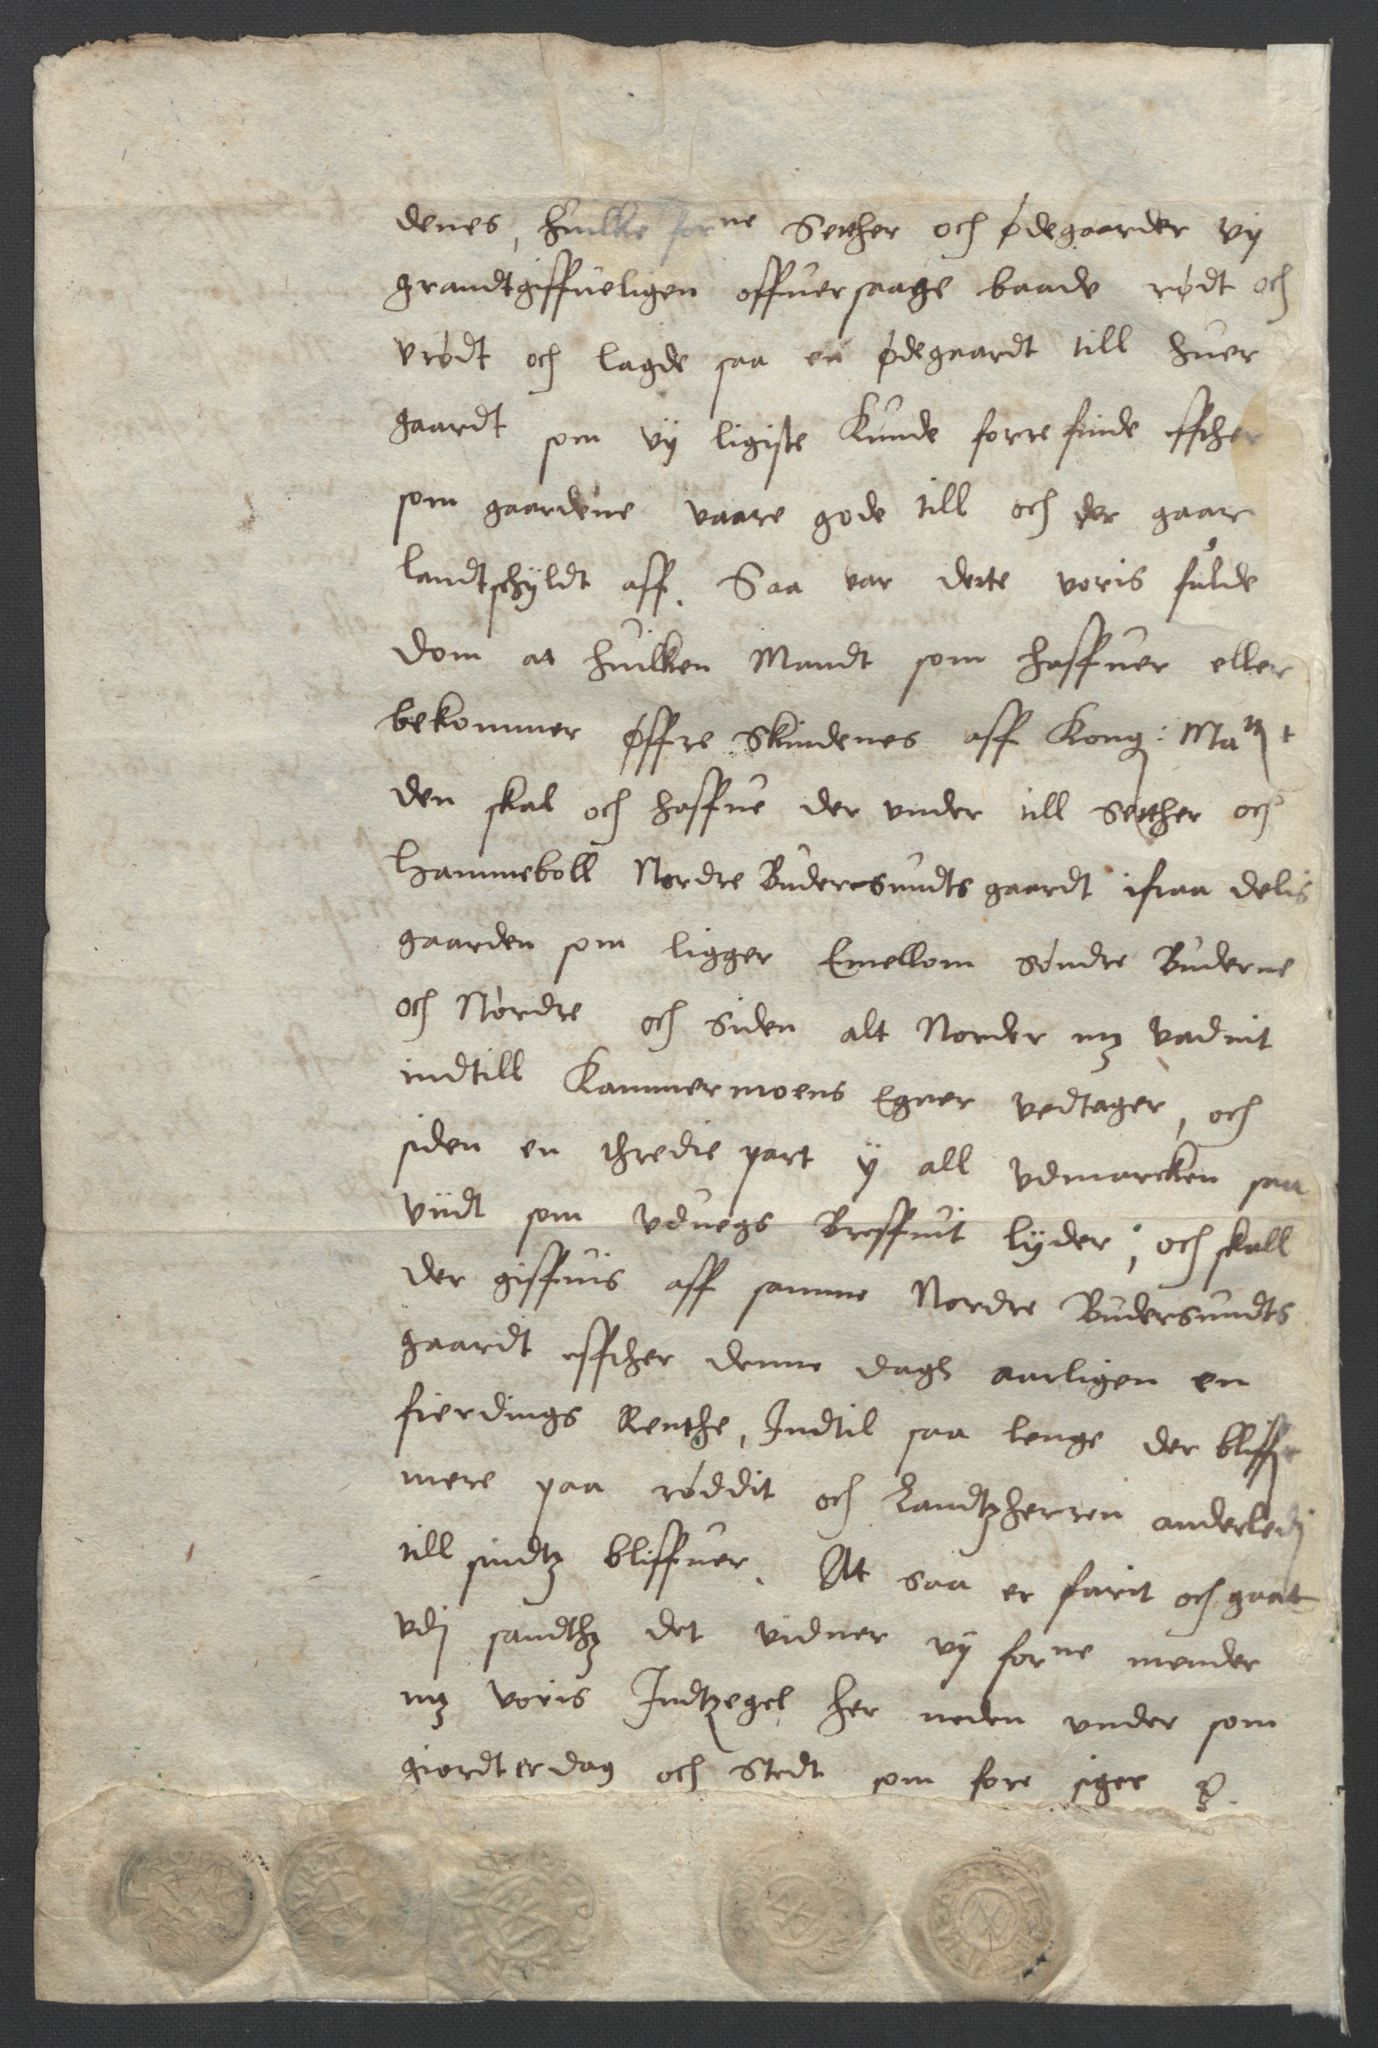 denes, huilke forne Setther och ødegaarder vij
grandtgiffueligen offuersaage baade rødt och
vrødt och lagde saa en ødegaardt till huer
gaardt som vij ligiste kunde forrefinde effther
som gaardene vaare gode till och der gaar
landtschyldt aff. Saa var dette voris fulde
Dom at huilken Mandt som haffuer eller
bekommer øffre Skindenes aff Kong: Matt
den skal och haffue der vnder till Setther och
Hammeboll Nordre Budersundts gaardt ifraa delis
gaarden som ligger Emellom Søndre Buderne
och Nordre och siden alt Norder mz vadnit
indtill Kammermoens Egner vedtager, och
siden en thredie part ij all vdmarcken saa
viidt som vduegs Breffuit lyder, och skall
der giffuis aff samme Nordre Budersundts
gaardt effther denne dagh aarligen en
fierdings Renthe, Indtil saa lenge der bliffr
mere paa røddit och Landtzherren anderledj
till sindtz bliffuer. At saa er farit och gaat
vdj sandthz det vidner vij forne mender
mz voris Indtzegel her neden vnder som
giordt er dag och Stedt som fore siger